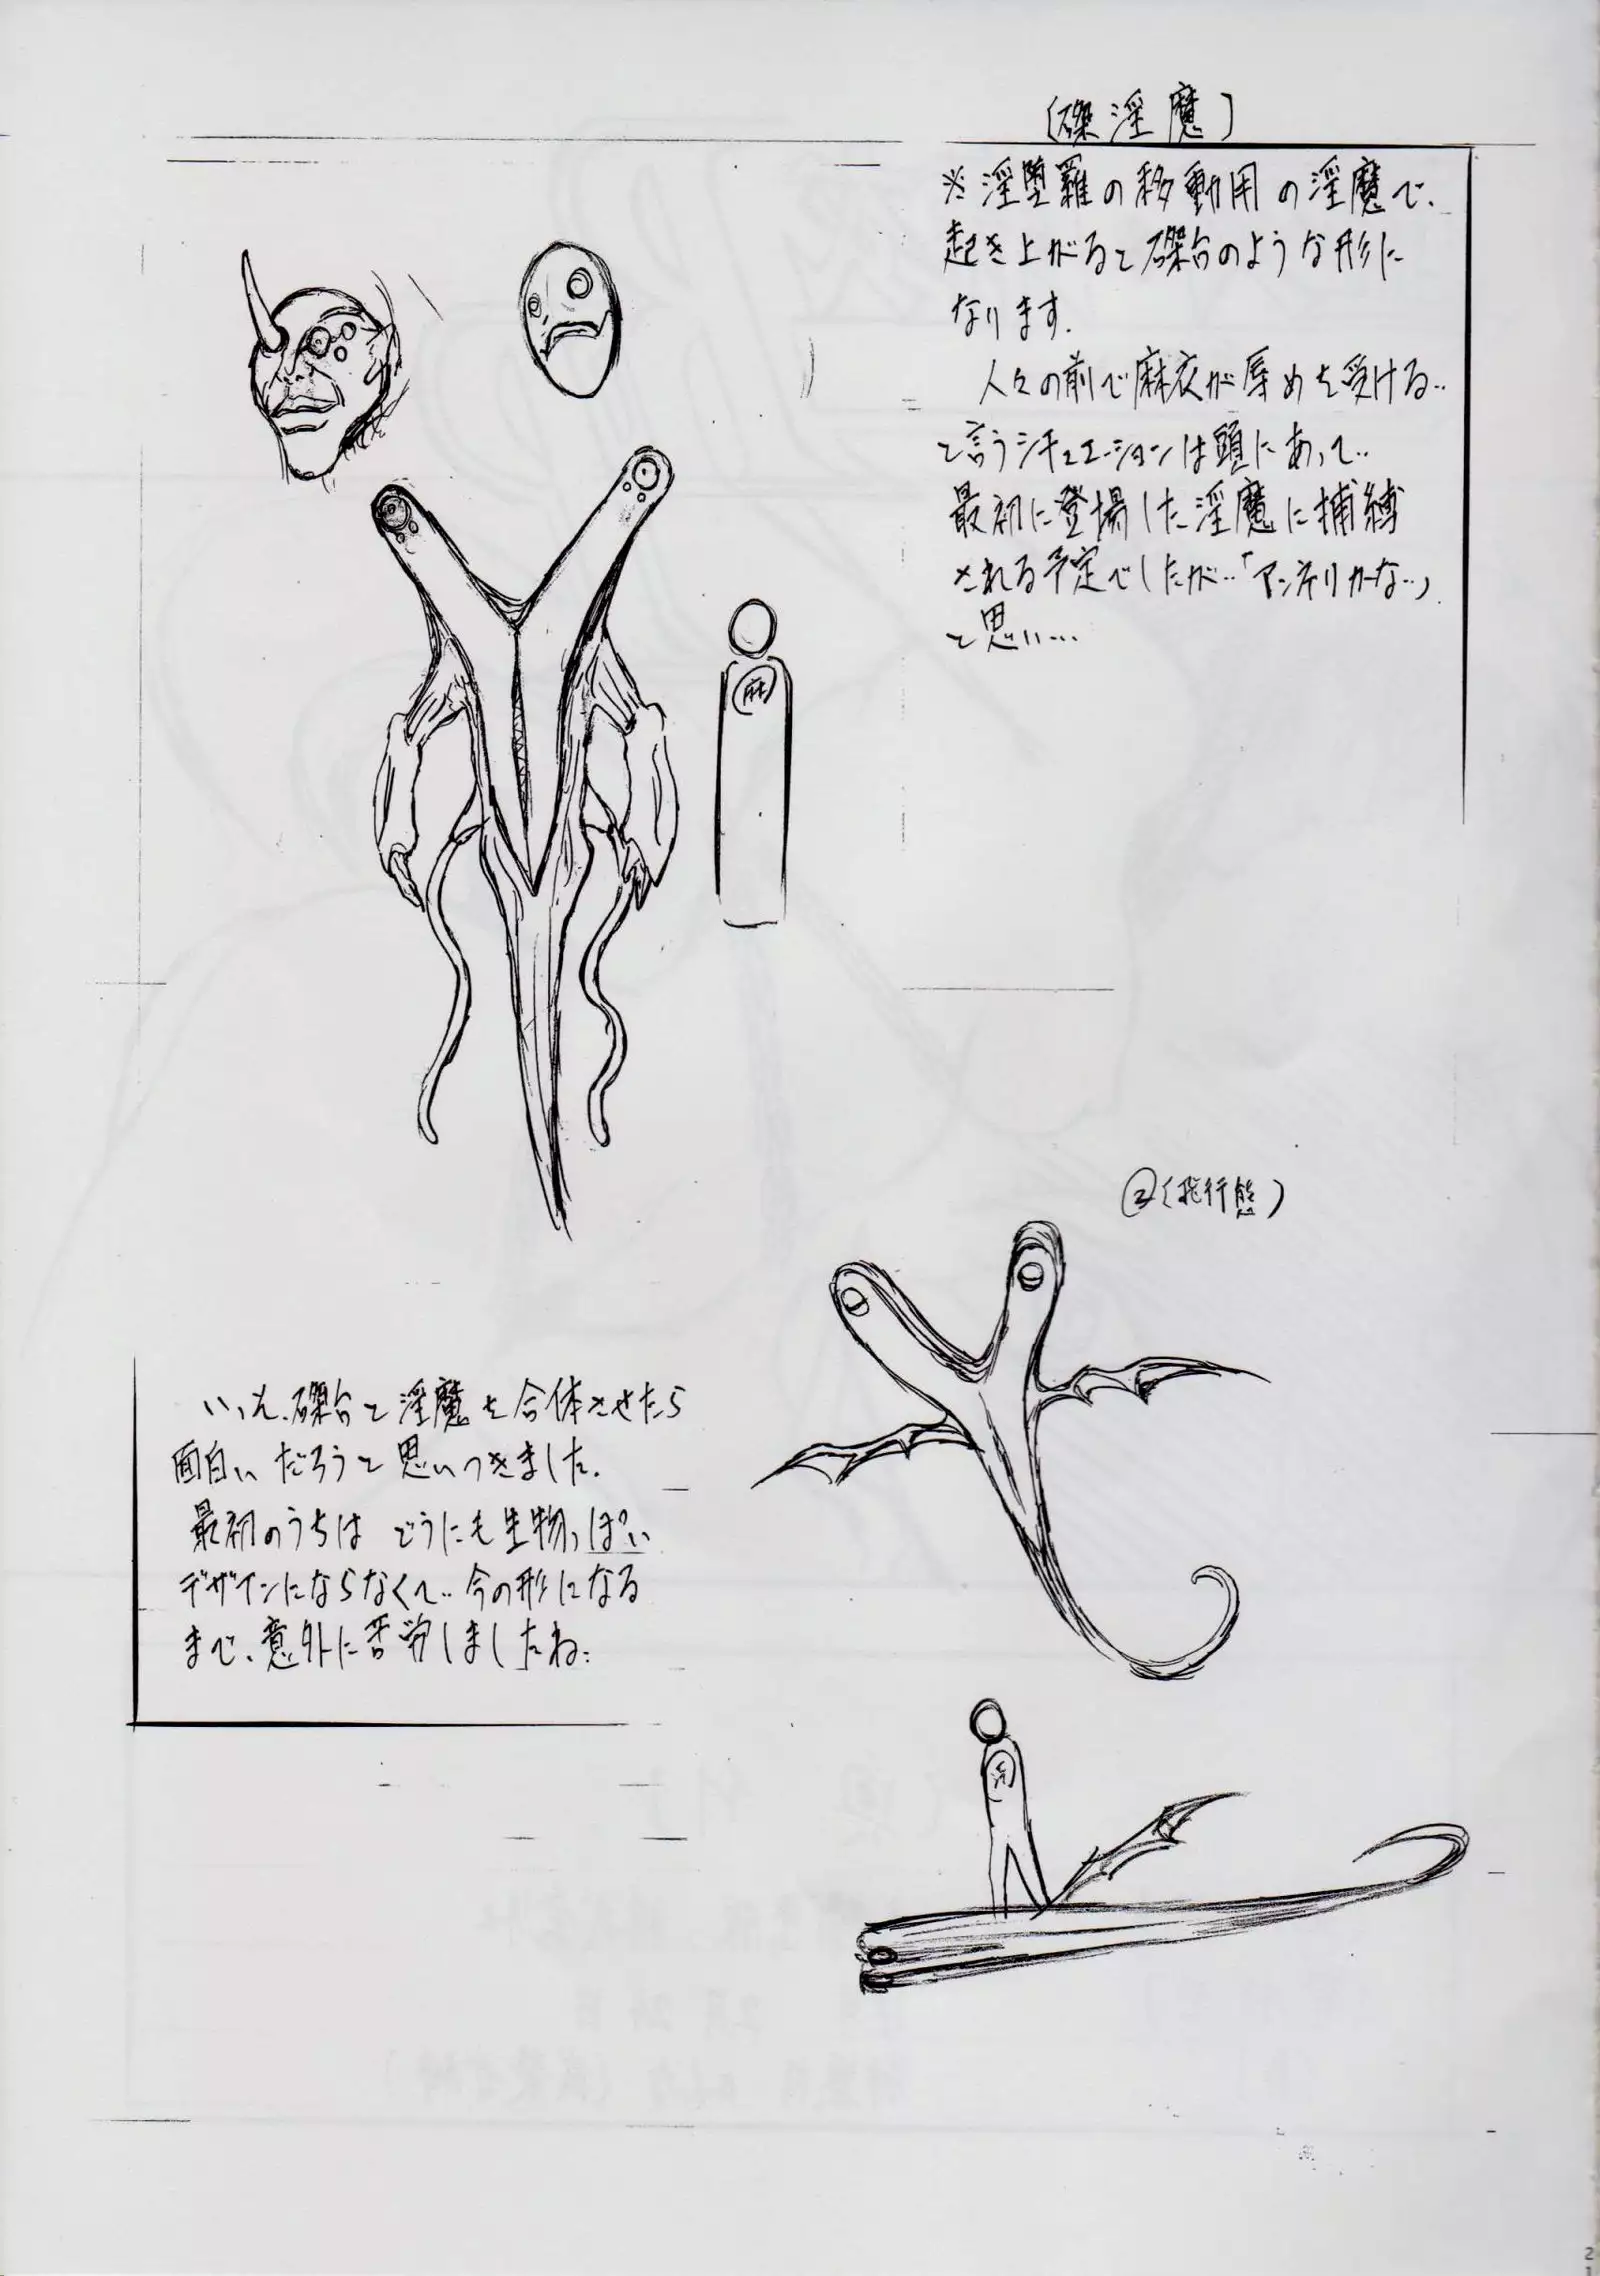 (磔淫魔)
※淫堕羅の移動用の淫魔で、
起き上がると磔台のような形に
なります.
人々の前で麻衣が辱めを受ける..
と言うシチュエーションは頭にあって..
最初に登場した淫魔に捕縛
される予定でしたが..「アンチリカーな..」
と思い...
麻
②(飛行態)
いっそ、磔台と淫魔を合体させたら
面白いだろうと思いつきました.
最初のうちは どうにも生物っぽい
デザインにならなくて..今の形になる
まで、意外に苦労しましたね..
淫
21